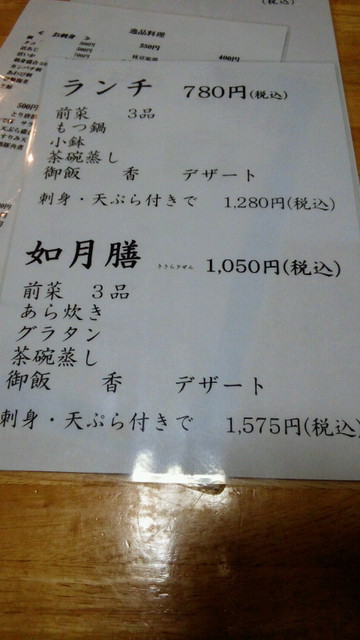 (税込)
お刺身
逸品料理
500円
350円
400円
500円
ランチ 780円(税込)
前菜 3品
もつ鍋
小鉢
茶碗蒸し
御飯 香 デザート
刺身・天ぷら付きで 1,280円(税込)
如月膳 きさらぎぜん 1,050円(税込)
前菜 3品
あら炊き
グラタン
茶碗蒸し
御飯 香 デザート
刺身・天ぷら付きで 1,575円(税込)